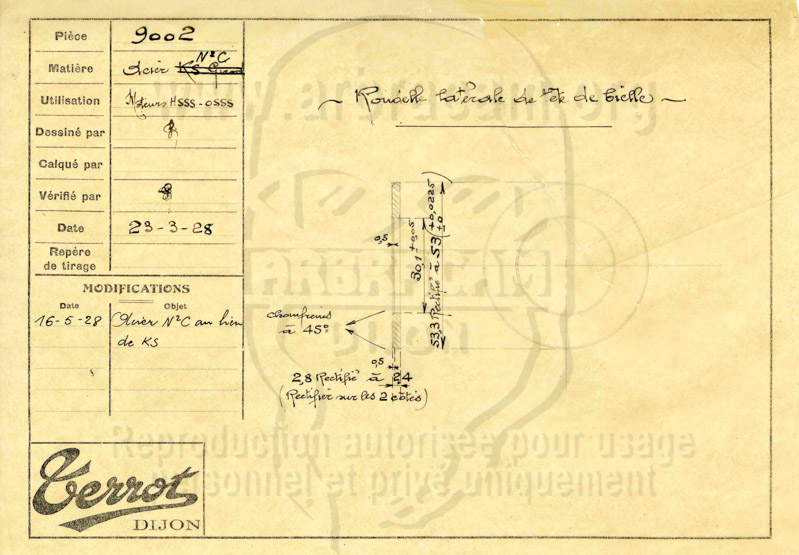 Pièce 9002
Matière Acier KS N²C
Utilisation Moteurs HSSS-OSSS
Dessiné par
Calqué par
Vérifié par
Date 23-3-28
Repère
de tirage
MODIFICATIONS
Date Objet
16-5-28 Acier N²C au lieu
de KS
Terrot
DIJON
~ Rondelle latérale de tête de bielle ~
0,5
30,1 ±0,05
53,3 Rectifié à 53 (+0,0225 ±0)
chanfreins
à 45°
0,5
2,8 Rectifié à 2,4
(Rectifier sur les 2 côtés)
www.arbracam.org
ARBRACAM
DIJON
Reproduction autorisée pour usage
personnel et privé uniquement